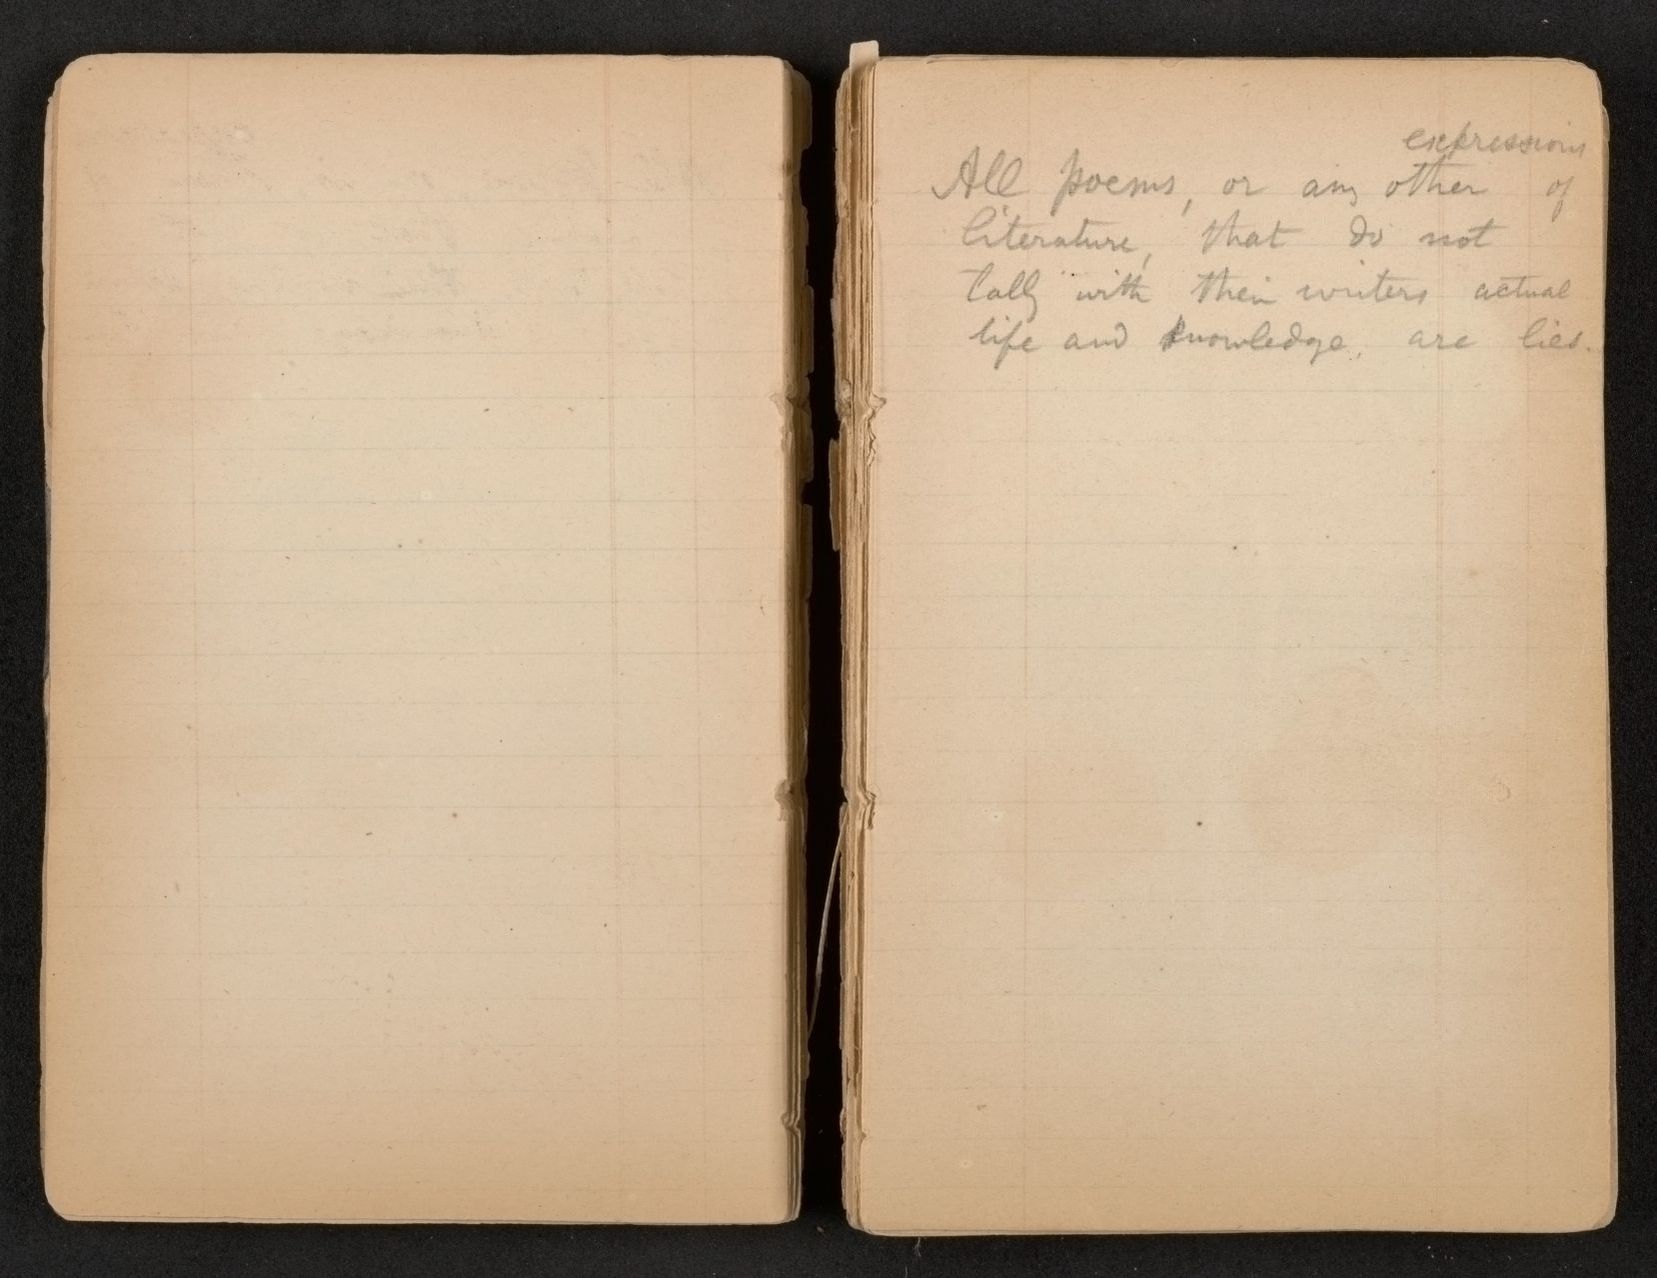 expressions
All poems, or any other of
literature, that do not
tally with their writers actual
life and knowledge, are lies.